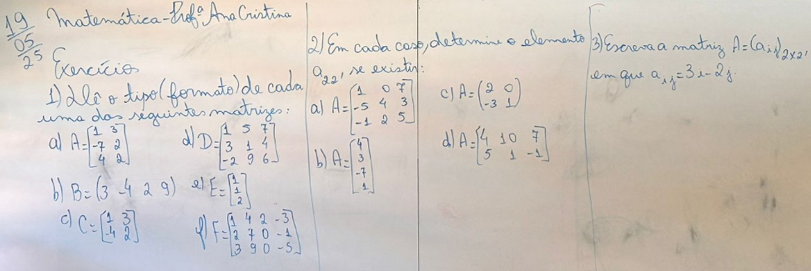 19/05/25 Matemática - Profª Ana Cristina
Exercícios
1) Dê o tipo (formato) de cada
uma das seguintes matrizes:
a) A = [1 3
-7 2
4 2]
b) B = (3 -4 2 9)
c) C = [1 3
-4 2]
d) D = [1 5 7
3 1 4
-2 9 6]
e) E = [1
1
2]
f) F = [1 4 2 -3
2 7 0 -1
3 9 0 -5]
2) Em cada caso, determine o elemento
a22, se existir:
a) A = [1 0 7
-5 4 3
-1 2 5]
b) A = [4
3
-7
1]
c) A = (2 0
-3 1)
d) A = [4 10 7
5 1 -1]
3) Escreva a matriz A = (aij)2x2,
em que ai,j = 3i - 2j.